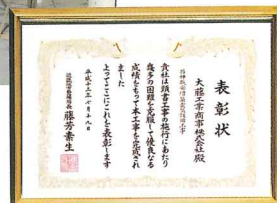 表彰状
大藤工業商事株式会社殿
貴社は頭書工事の施行にあたり
幾多の困難を克服して優良なる
成績をもって本工事を完成され
ました
よってここにこれを表彰します
平成十三年七月十九日
藤芳素生